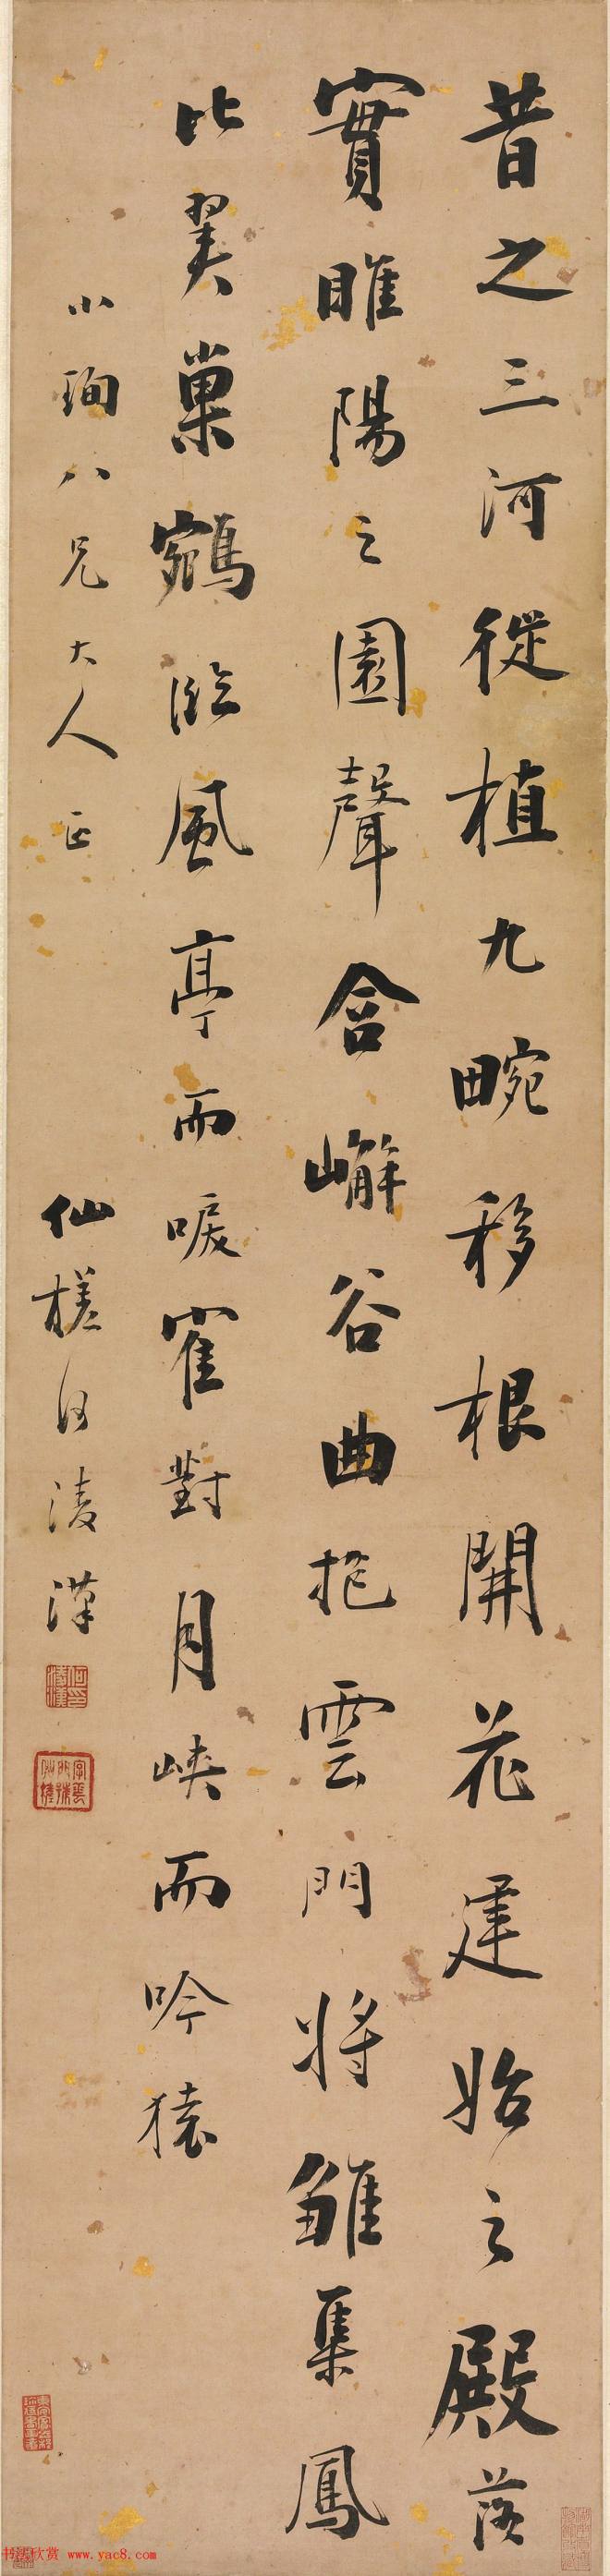 昔之三河從植九畹移根開花建始之殿落
實睢陽之園聲含嶰谷曲抱雲門將雛集鳳
比翼巢鵷臨風亭而唳寉對月峽而吟猿
小珣八兄大人正
仙槎何淩漢
何印淩漢
书法欣赏 www.yac8.com